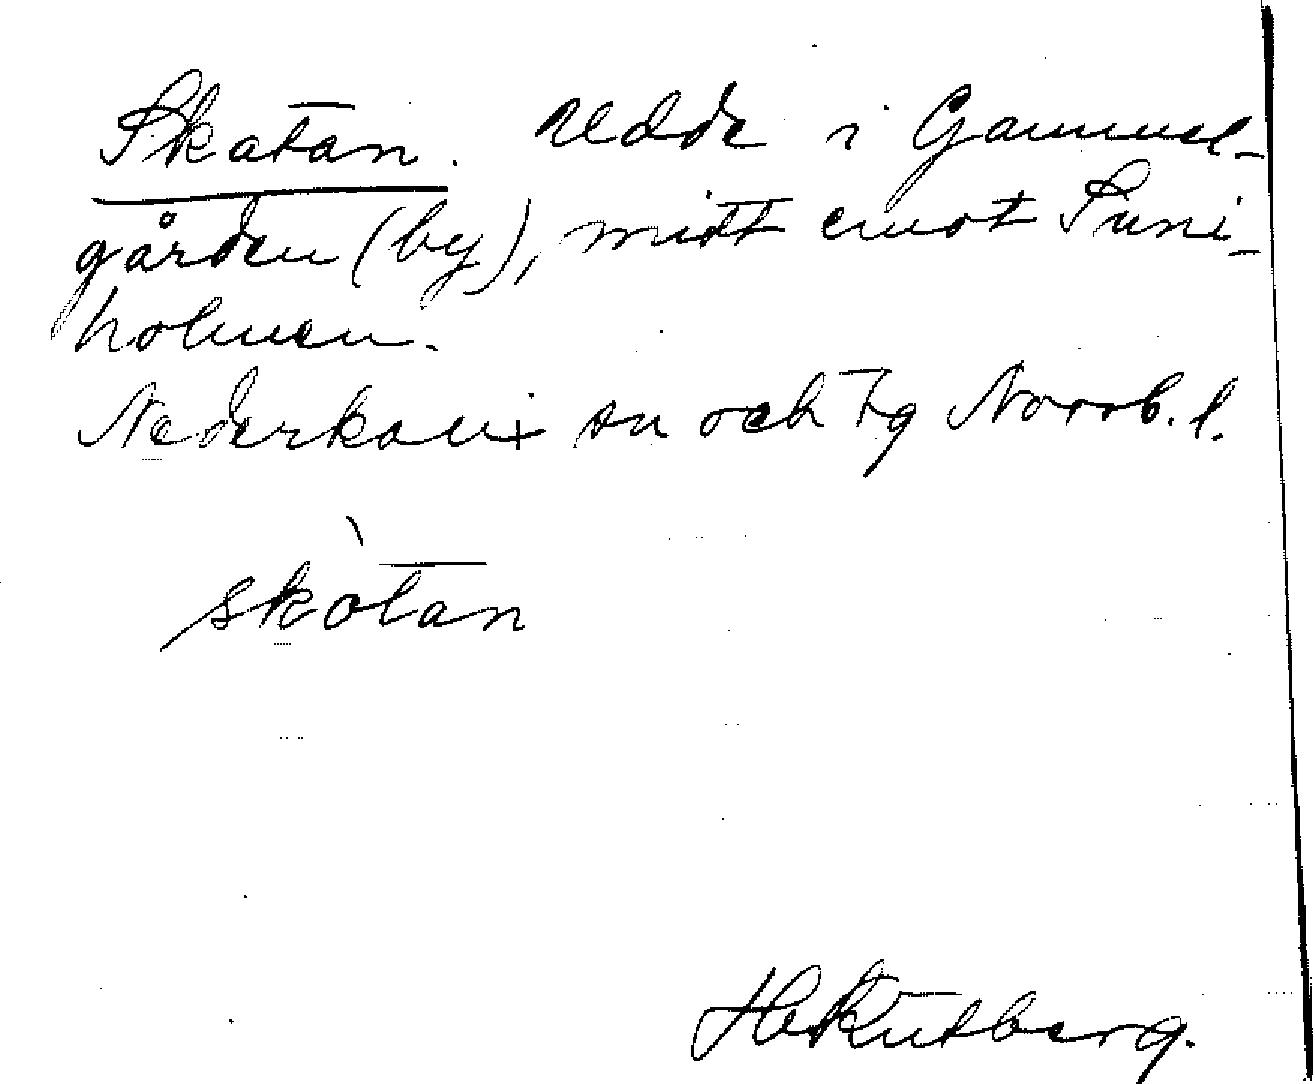 Skatan. udde i Gammel-
gården (by), mitt emot Suni-
holmen.
Nederkalix sn och tg Norrb. l.
skàtan